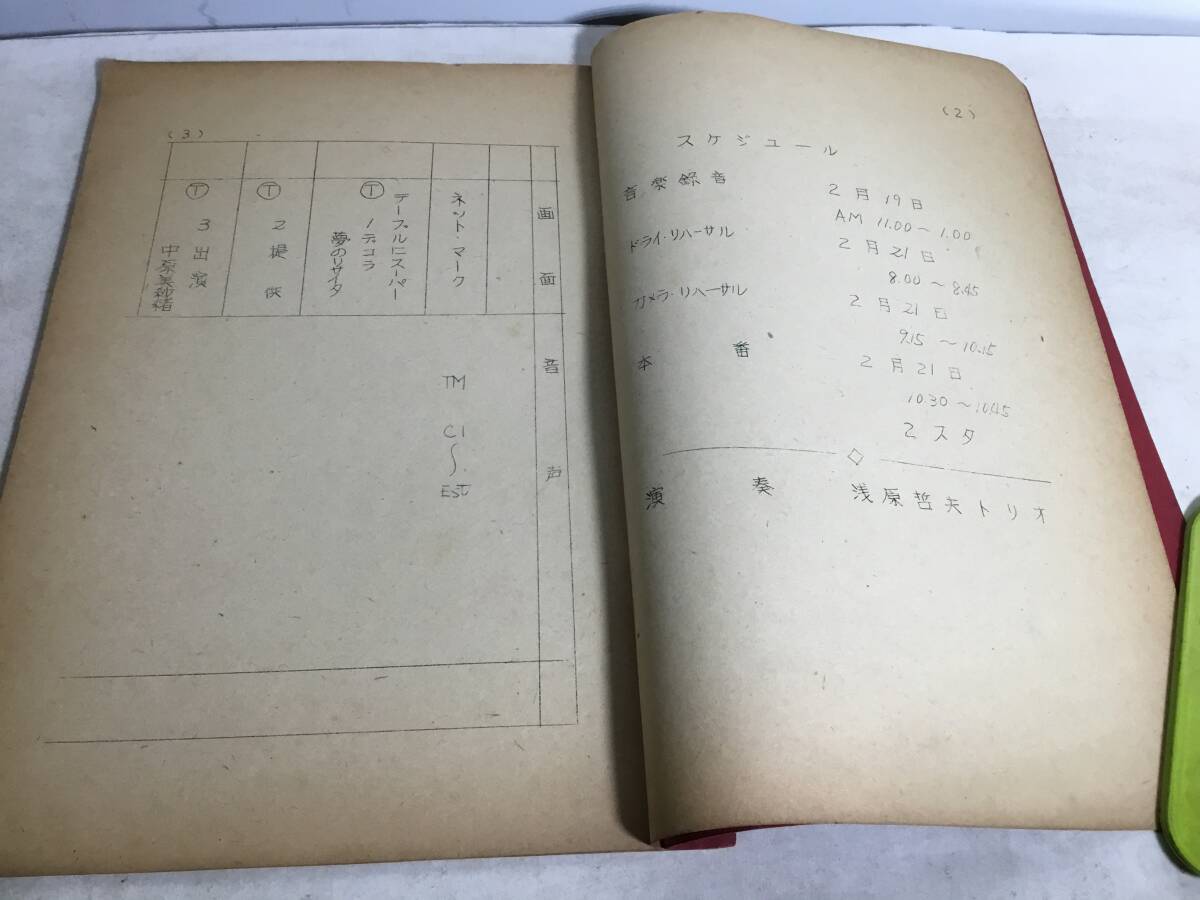 (2)
スケジュール
音楽録音 2月19日
AM 11.00～1.00
ドライ・リハーサル 2月21日
8.00～8.45
カメラ・リハーサル 2月21日
9.15～10.15
本番 2月21日
10.30～10.45
2スタ
演奏 浅原哲夫トリオ
(3)
画面
音声
ネット・マーク
TM
CI
～
EST
Ⓣ テーブルにスーパー
1.デコラ
夢のリサイタ
Ⓣ 2 提供
Ⓣ 3 出演
中原美紗緒